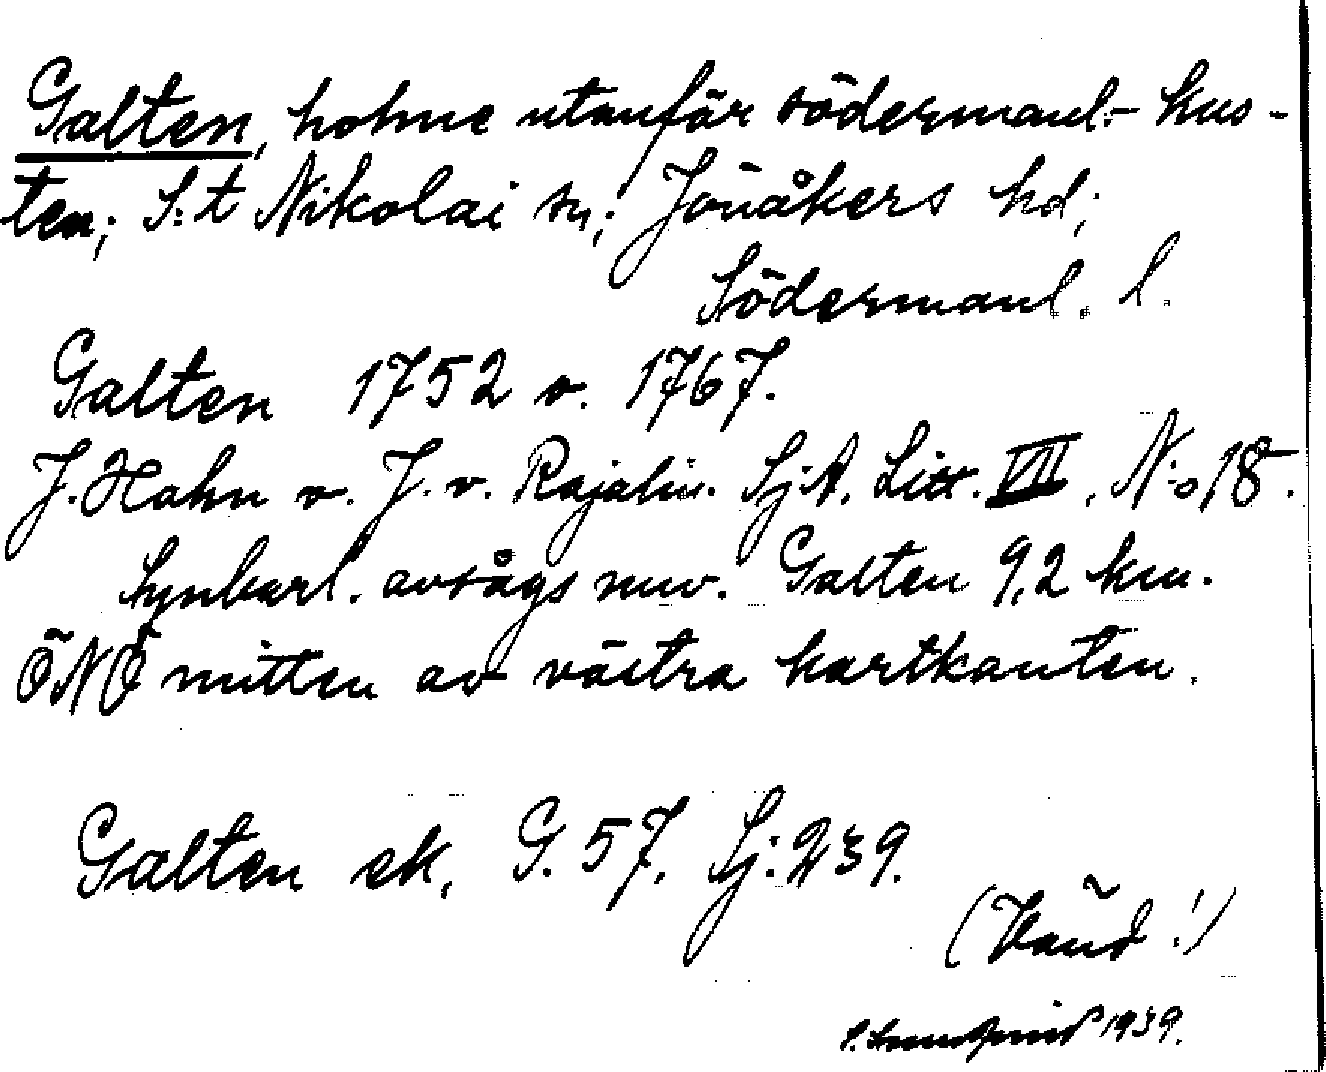 Galten, holme utanför södermanl.- kus-
ten; S:t Nikolai sn; Jönåkers hd;
Södermanl. l.
Galten 1752 o. 1767.
J. Hahn o. J. v. Rajalin. SjA, Litt. VII, N:o 18.
Synbarl. avsågs nuv. Galten 9,2 km.
ÖNÖ mitten av västra kartkanten.
Galten ek, G. 57, Sj: 239.
(Vänd!)
1939.